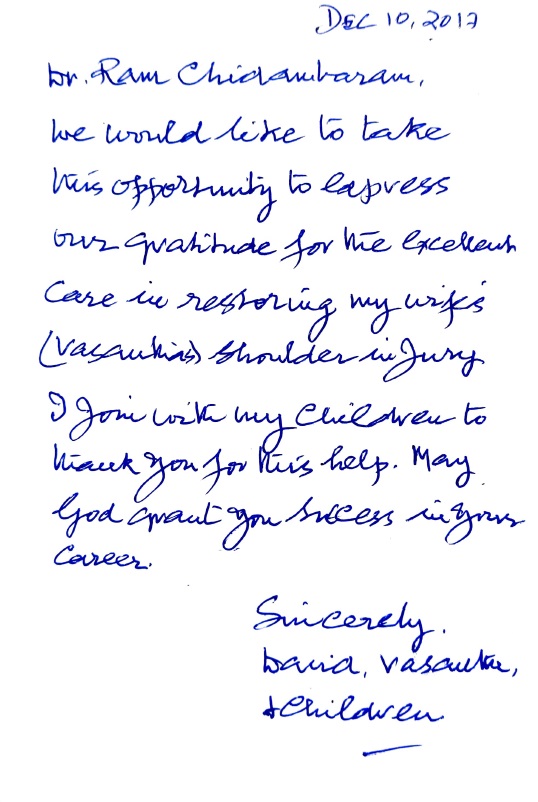 DEC 10, 2017
Dr. Ram Chidambaram,
We would like to take
this opportunity to express
our gratitude for the excellent
Care in restoring my wife's
(Vasantha's) shoulder injury
I Join with my Children to
thank you for this help. May
God grant you success in your
Career.
Sincerely.
David, Vasantha,
+ Children